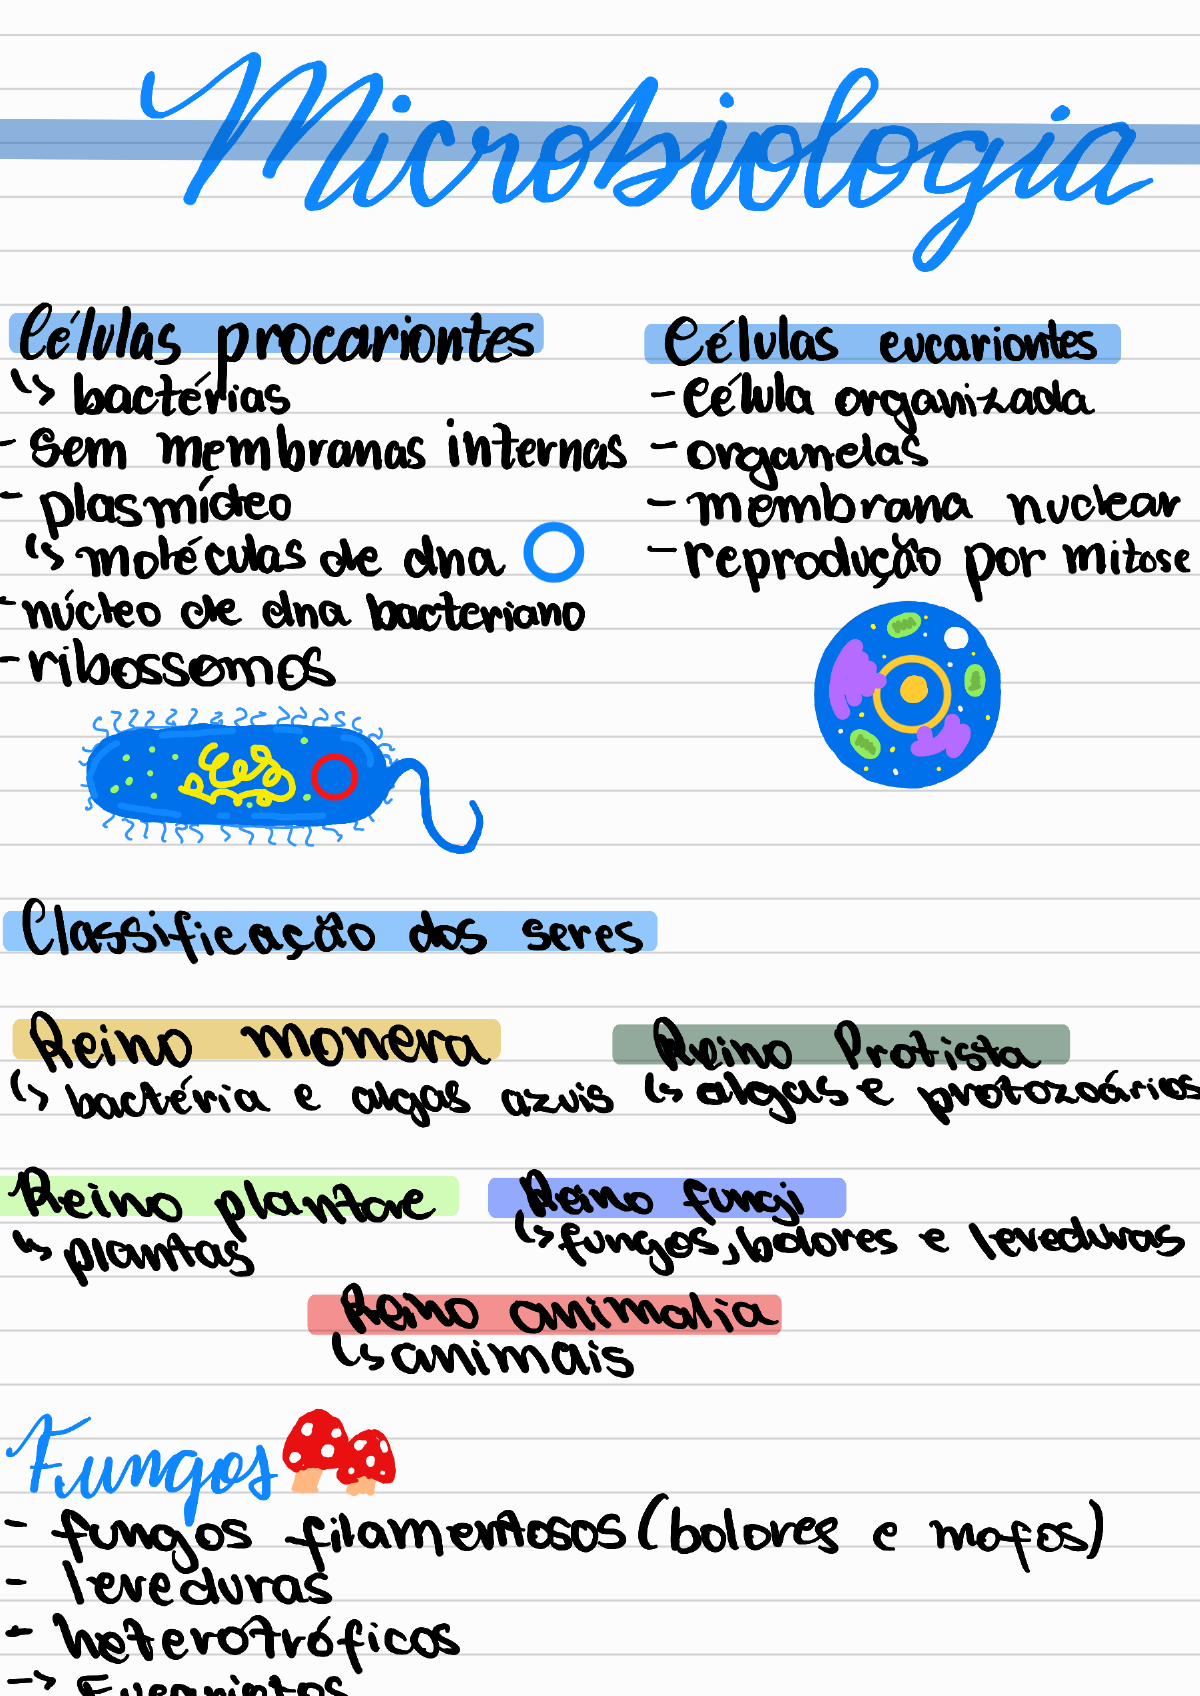 Microbiologia
Células procariontes
↳ bactérias
- sem membranas internas
- plasmídeo
↳ moléculas de dna
- núcleo de dna bacteriano
- ribossomos
Células eucariontes
- Célula organizada
- organelas
- membrana nuclear
- reprodução por mitose
Classificação dos seres
Reino monera
↳ bactéria e algas azuis
Reino Protista
↳ algas e protozoários
Reino plantae
↳ plantas
Reino fungi
↳ fungos, bolores e leveduras
Reino animalia
↳ animais
Fungos
- fungos filamentosos (bolores e mofos)
- leveduras
- heterotróficos
-> Eucariotos